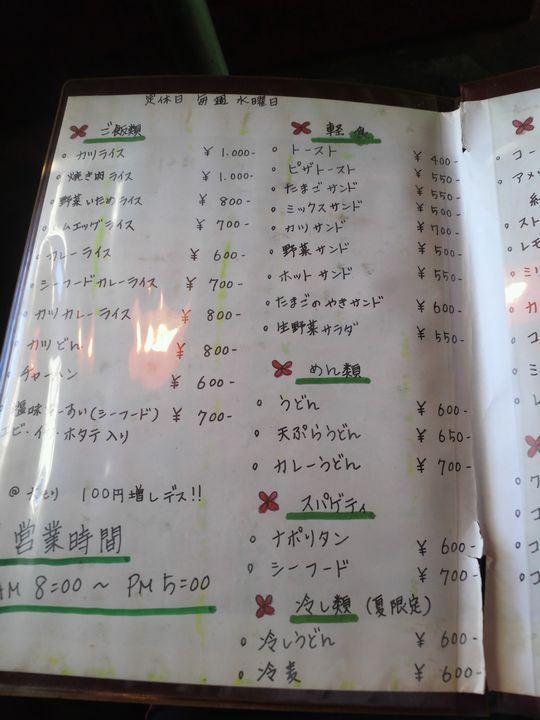 定休日 毎週 水曜日
ご飯類
カツライス ¥1.000-
焼き肉ライス ¥1.000-
野菜いためライス ¥800-
ムエッグライス ¥700-
カレーライス ¥600-
シーフードカレーライス ¥700-
カツカレーライス ¥800-
カツどん ¥800-
チャーハン ¥600-
塩味ぞーすい(シーフード) ¥700-
エビ・イカ・ホタテ入り
@ 大もり 100円増しデス!!
営業時間
AM 8=00 ~ PM 5=00
軽食
トースト ¥400-
ピザトースト ¥550-
たまごサンド ¥550-
ミックスサンド ¥500-
カツサンド ¥700-
野菜サンド ¥500-
ホットサンド ¥550-
たまごのやきサンド ¥600-
生野菜サラダ ¥550-
めん類
うどん ¥600-
天ぷらうどん ¥650-
カレーうどん ¥700-
スパゲティ
ナポリタン ¥600-
シーフード ¥700-
冷し類 (夏限定)
冷しうどん ¥600-
冷麦 ¥600-
コー
アメッ